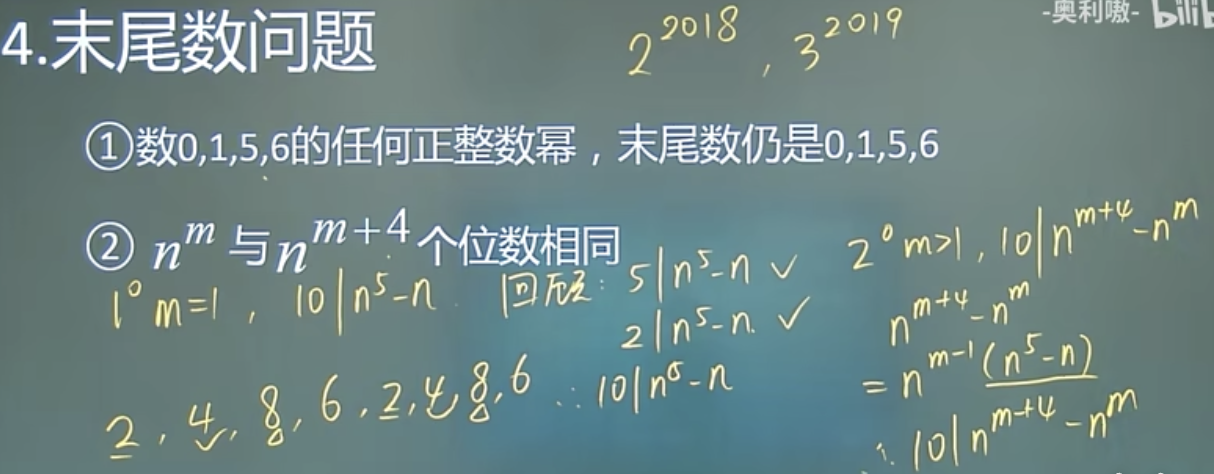 -奥利嗷- bilib
4.末尾数问题
2^2018 , 3^2019
①数0,1,5,6的任何正整数幂，末尾数仍是0,1,5,6
② n^m 与n^m+4 个位数相同
1° m=1 , 10|n^5-n
回顾: 5|n^5-n ✓
2|n^5-n. ✓
∴ 10|n^5-n
2 , 4 , 8 , 6 , 2 , 4 , 8 , 6
2° m>1 , 10|n^m+4-n^m
n^m+4-n^m
=n^m-1(n^5-n)
∴ 10|n^m+4-n^m